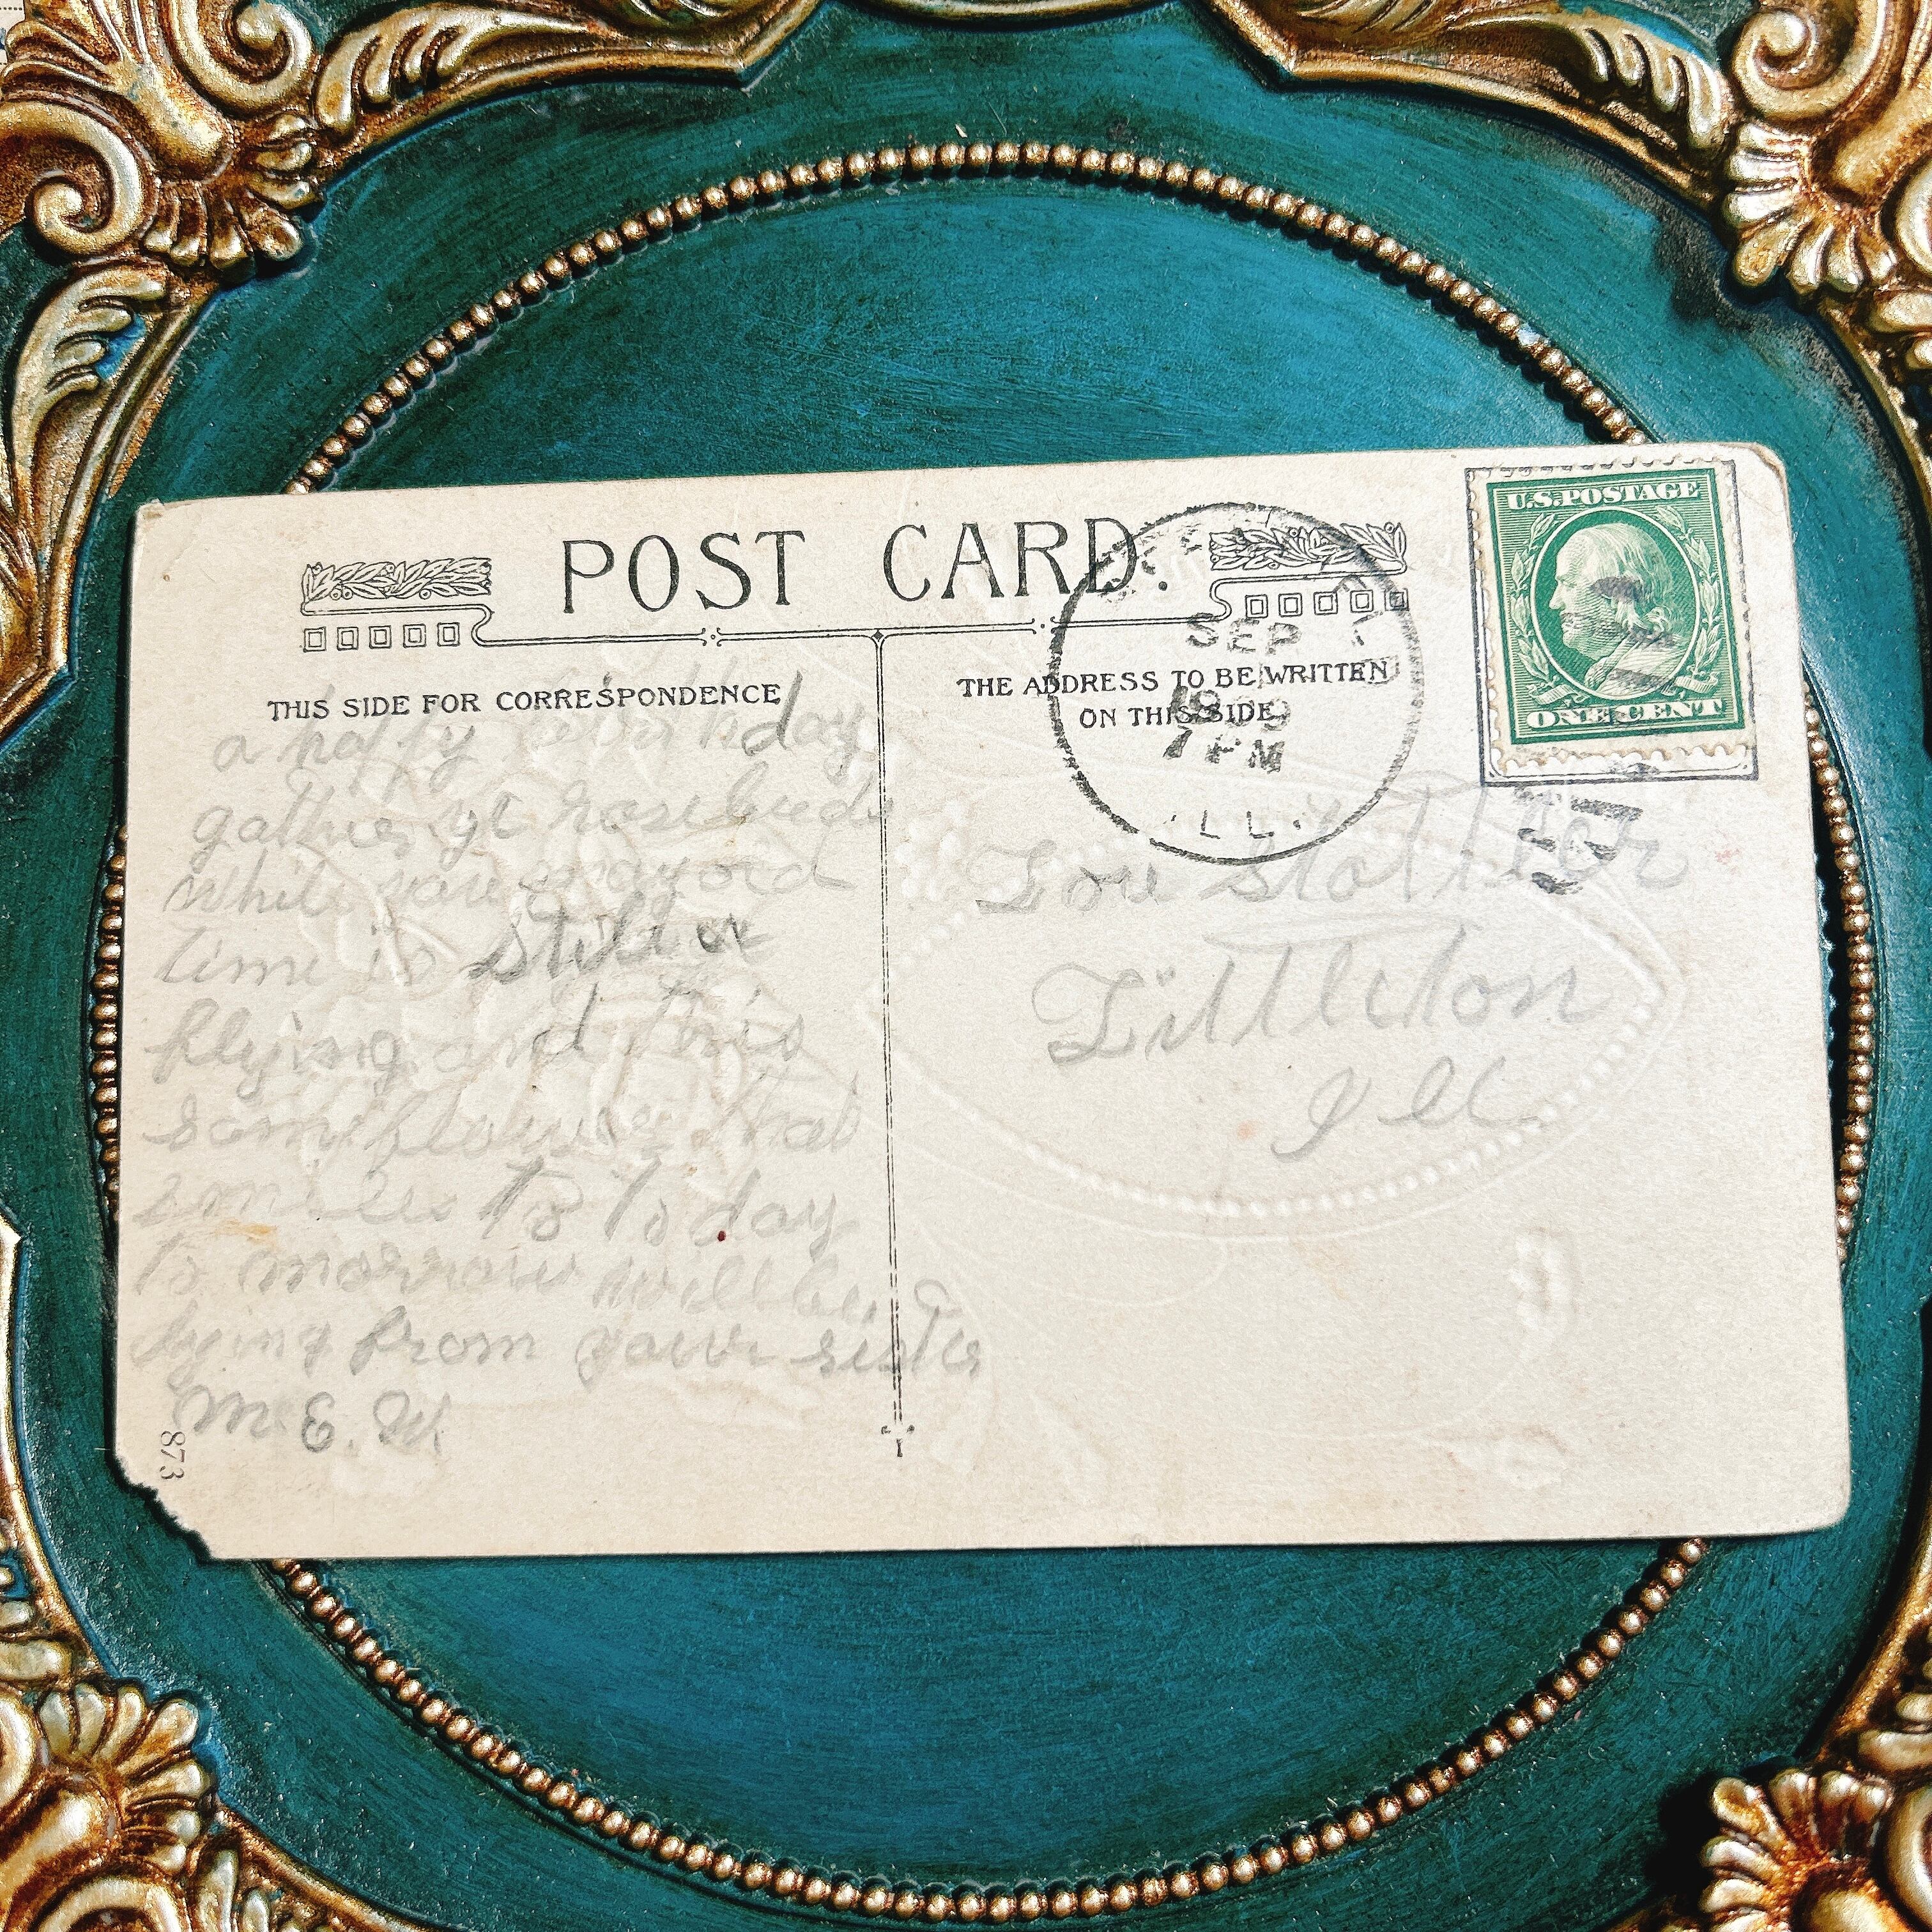 POST CARD.
THIS SIDE FOR CORRESPONDENCE
THE ADDRESS TO BE WRITTEN
ON THIS SIDE
U.S. POSTAGE
ONE CENT
SEP 7
1909
1 PM
ILL.
a happy birthday
gather ye rosebuds
while you may old
time is still a
flying and this
same flower that
smiles to to day
to morrow will be
dying from your sister
M. E. W
Lou
Littleton
Ill
873